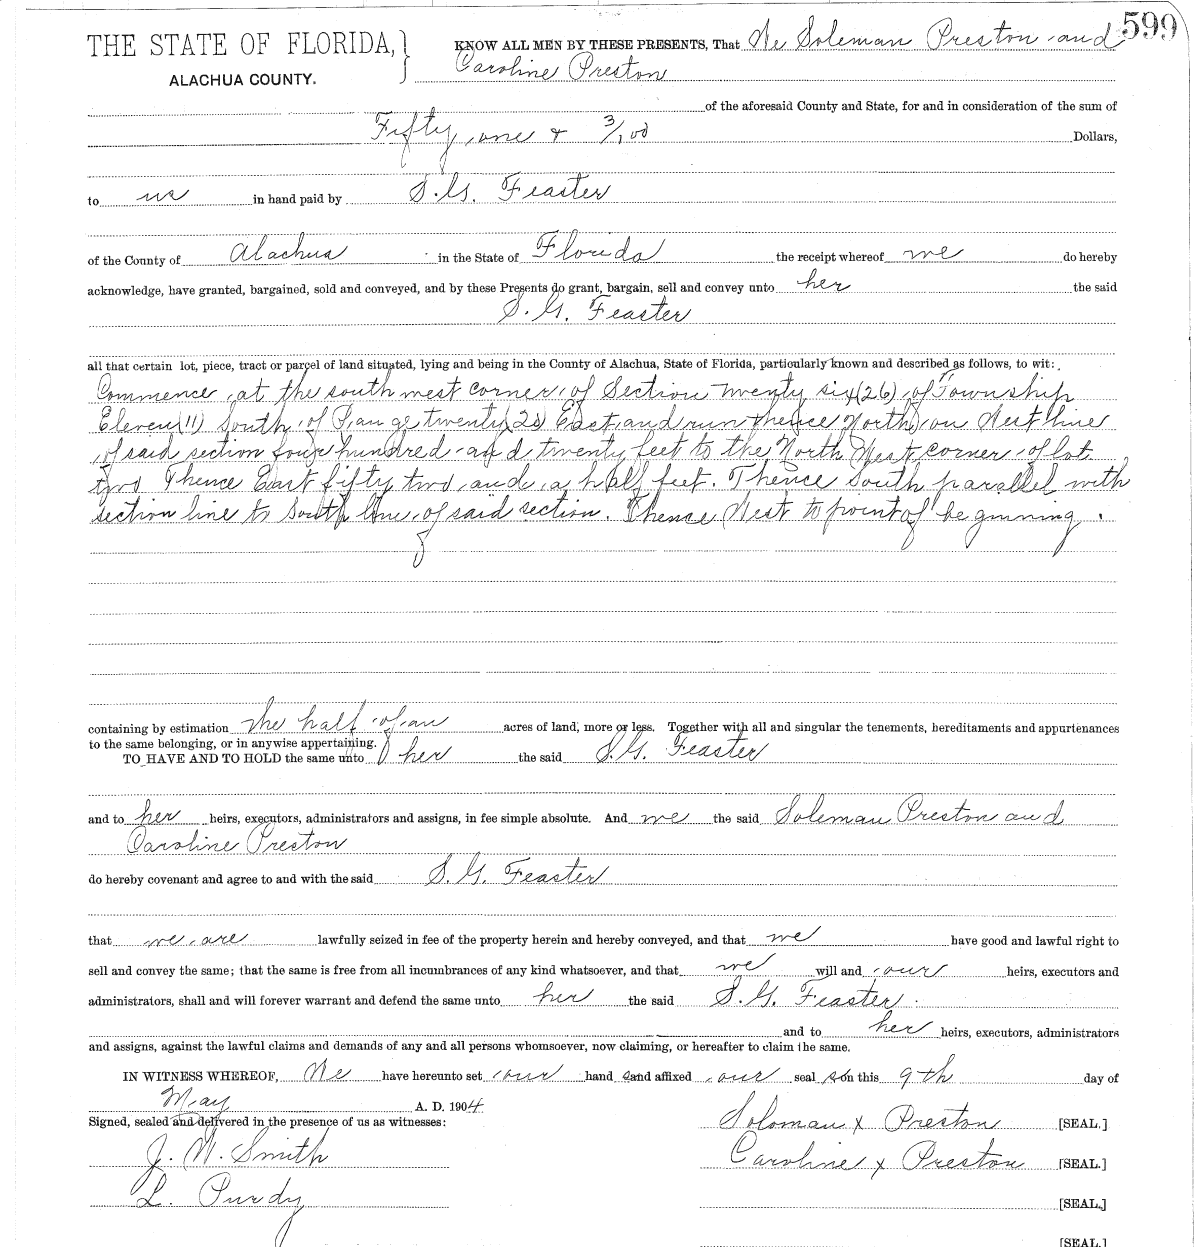 599
THE STATE OF FLORIDA,
ALACHUA COUNTY.
KNOW ALL MEN BY THESE PRESENTS, That We Soleman Preston and
Caroline Preston
of the aforesaid County and State, for and in consideration of the sum of
Fifty one & 3/100 Dollars,
to us in hand paid by S. G. Feaster
of the County of Alachua in the State of Florida the receipt whereof we do hereby
acknowledge, have granted, bargained, sold and conveyed, and by these Presents do grant, bargain, sell and convey unto her the said
S. G. Feaster
all that certain lot, piece, tract or parcel of land situated, lying and being in the County of Alachua, State of Florida, particularly known and described as follows, to wit:
Commence at the south west corner of Section twenty six (26) of Township
Eleven (11) South of Range twenty (20) East and run thence North on West line
of said section four hundred and twenty feet to the North West corner of lot
two Thence East fifty two and a half feet. Thence South parallel with
section line to South line of said section. Thence West to point of beginning.
containing by estimation the half of an acres of land, more or less. Together with all and singular the tenements, hereditaments and appurtenances
to the same belonging, or in anywise appertaining.
TO HAVE AND TO HOLD the same unto her the said S. G. Feaster
and to her heirs, executors, administrators and assigns, in fee simple absolute. And we the said Soleman Preston and
Caroline Preston
do hereby covenant and agree to and with the said S. G. Feaster
that we are lawfully seized in fee of the property herein and hereby conveyed, and that we have good and lawful right to
sell and convey the same; that the same is free from all incumbrances of any kind whatsoever, and that we will and our heirs, executors and
administrators, shall and will forever warrant and defend the same unto her the said S. G. Feaster.
and to her heirs, executors, administrators
and assigns, against the lawful claims and demands of any and all persons whomsoever, now claiming, or hereafter to claim the same.
IN WITNESS WHEREOF, We have hereunto set our hand s and affixed our seal s on this 9th day of
May A. D. 1904
Signed, sealed and delivered in the presence of us as witnesses:
Soloman x Preston [SEAL.]
J. W. Smith
Caroline x Preston [SEAL.]
L. Purdy
[SEAL.]
[SEAL.]